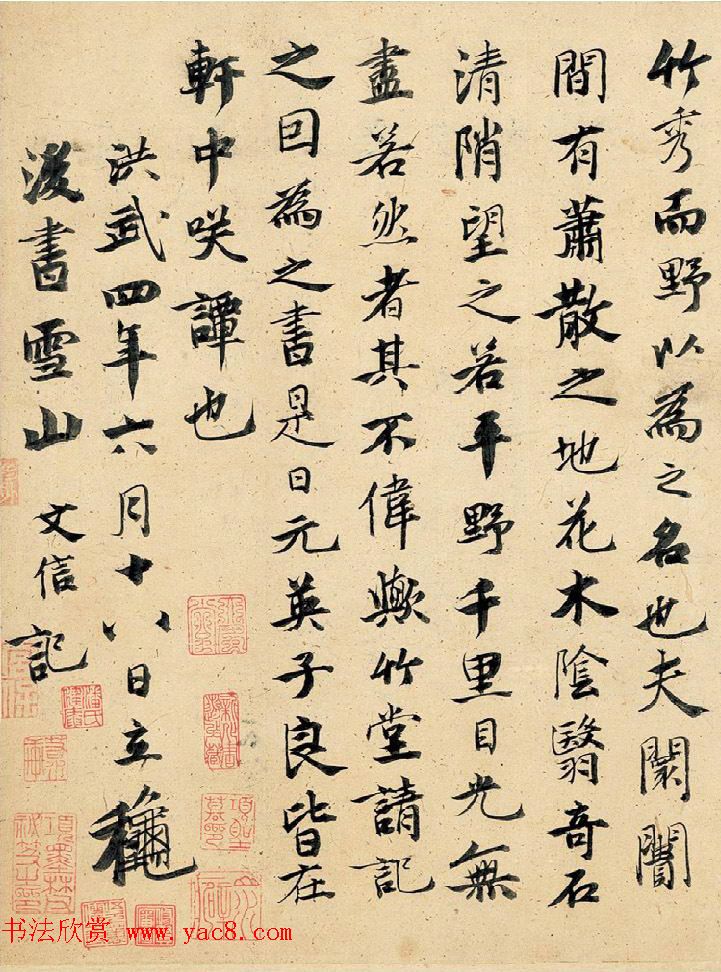 竹秀而野以為之名也夫闤闠
間有蕭散之地花木陰翳奇石
清陗望之若平野千里目光無
盡若然者其不偉歟竹堂請記
之因為之書是日元英子良皆在
軒中咲譚也
洪武四年六月十八日立穐
後書雪山文信記
书法欣赏 www.yac8.com